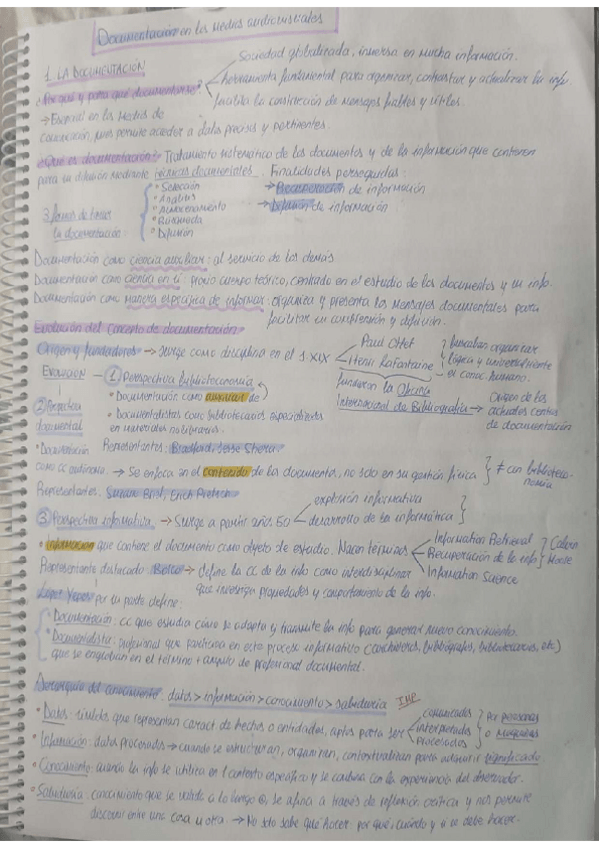 Documentación en los Medios audiovisuales
1. LA DOCUMENTACIÓN
¿Por qué y para qué documentarse?
Sociedad globalizada, inmersa en mucha información.
herramienta fundamental para organizar, contrastar y actualizar la info.
facilita la construcción de mensajes fiables y útiles.
→ Esencial en los Medios de
comunicación, pues permite acceder a datos precisos y pertinentes.
¿Qué es documentación? Tratamiento sistemático de los documentos y de la información que contienen
para su difusión mediante técnicas documentales. Finalidades perseguidas:
3 formas de
la documentación:
• Selección
• Análisis
• Almacenamiento
• Búsqueda
• Difusión
→ Recuperación de información
→ Difusión de información
Documentación como ciencia auxiliar: al servicio de las demás
Documentación como ciencia en sí: propio cuerpo teórico, centrado en el estudio de los documentos y su info.
Documentación como manera específica de informar: organiza y presenta los mensajes documentales para
facilitar su comprensión y difusión.
Evolución del concepto de documentación.
Origen y fundadores → surge como disciplina en el s XIX
Paul Otlet
Henri LaFontaine
buscaban organizar
lógica y universalmente
el conoc. humano.
fundaron la Oficina
Internacional de Bibliografía →
Origen de los
actuales centros
de documentación
EVOLUCIÓN — ① Perspectiva bibliotecnomía
• Documentación como auxiliar de
• Documentalistas como bibliotecarios especializados
en materiales no librarios.
Representantes: Bradford, Jesse Shera.
② Perspectiva
documental
• Documentación
como cc autónoma. → Se enfoca en el contenido de los documentos, no solo en su gestión física } ≠ con biblioteco-
nomía
Representantes: Suzanne Briet, Erich Pietsch
③ Perspectiva informativa → Surge a partir años 50
explosión informativa
desarrollo de la informática }
• Información que contiene el documento como objeto de estudio. Nacen términos
Information Retrieval
Recuperación de la info
Information Science
Calvin
Moore
Representante destacado: Borko → define la CC de la info como interdisciplinar
que investiga propiedades y comportamiento de la info.
López Yepes por su parte define:
• Documentación: cc que estudia cómo se adapta y transmite la info para generar nuevo conocimiento.
• Documentalista: profesional que participa en este proceso informativo (archiveros, bibliógrafos, bibliotecarios, etc)
que se engloban en el término + amplio de profesional documental.
Jerarquía del conocimiento: datos > información > conocimiento > sabiduría IMP
• Datos: símbolos que representan caract de hechos o entidades, aptos para ser
comunicados
interpretados
procesados
por personas
o máquinas
• Información: datos procesados → cuando se estructuran, organizan, contextualizan para adquirir significado
• Conocimiento: cuando la info se utiliza en 1 contexto específico y se combina con la experiencia del observador.
• Sabiduría: conocimiento que se valida a lo largo, se afina a través de reflexión críticas y nos permite
discernir entre una cosa u otra. → No solo sabe qué hacer, por qué, cuándo y si se debe hacer.